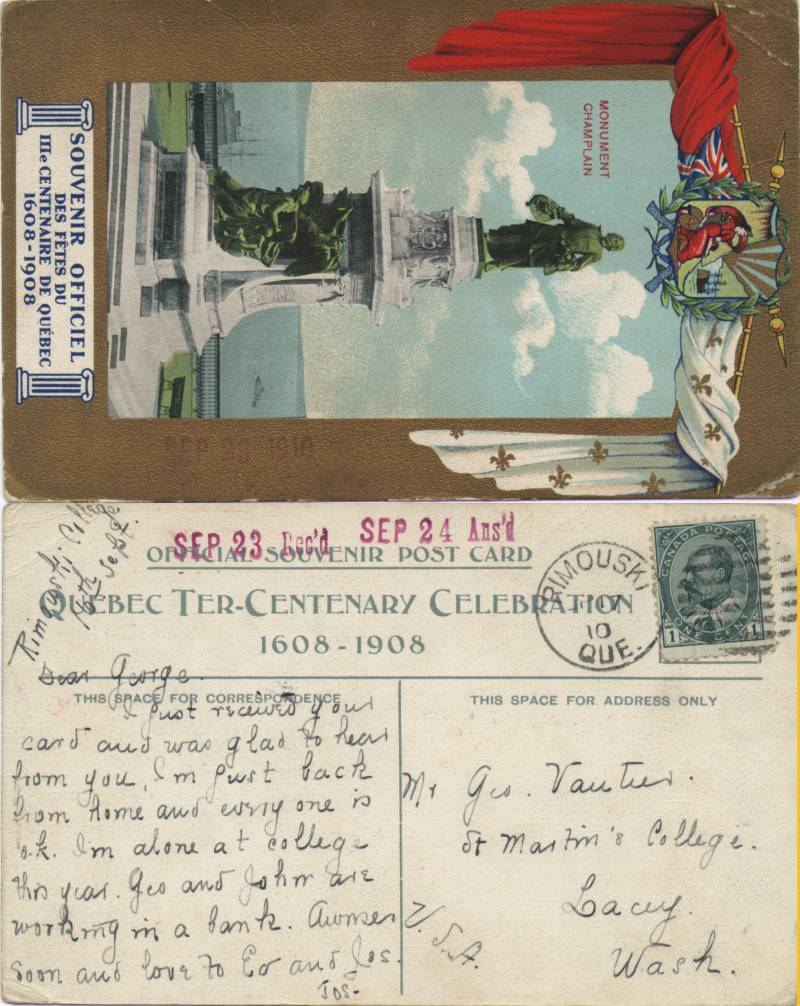 SOUVENIR OFFICIEL
DES FÊTES DU
IIIe CENTENAIRE DE QUÉBEC
1608-1908
MONUMENT
CHAMPLAIN
SEP 23 1910
Rimouski College
Sept.
SEP 23 Rec'd SEP 24 Ans'd
OFFICIAL SOUVENIR POST CARD
QUEBEC TER-CENTENARY CELEBRATION
1608-1908
RIMOUSKI
17
10
QUE.
CANADA POSTAGE
1 ONE CENT 1
Dear George.
THIS SPACE FOR CORRESPONDENCE
I just received your
card and was glad to hear
from you, I'm just back
from home and every one is
o.k. I'm alone at college
this year. Geo and John are
working in a bank. Awnser
soon and love to Ed and Jos.
Jos-
THIS SPACE FOR ADDRESS ONLY
Mr Geo. Vautier.
St Martin's College.
Lacey.
U.S.A.
Wash.